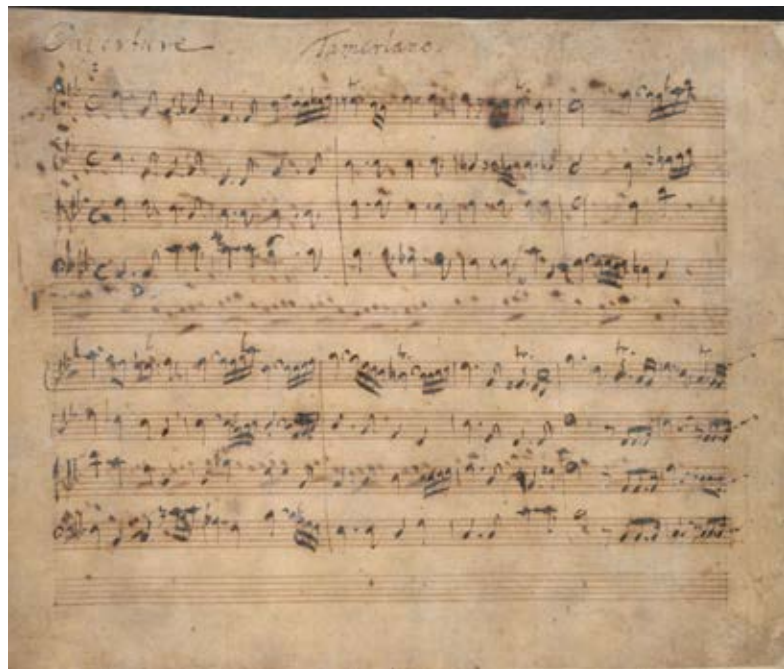 Overture Tamerlano.